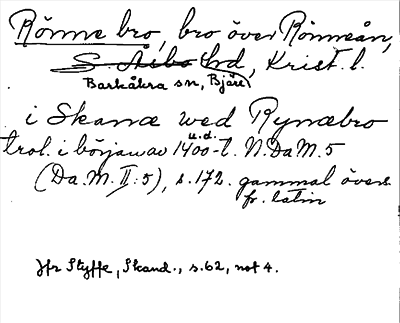 Rönne bro, bro över Rönneån,
S Åsbo hd, Krist. l.
Barkåkra sn, Bjäre
i Skanæ wed Rynæbro
u.d.
trol. i början av 1400-t. N.Da M. 5
(Da. M. II: 5), s. 172. gammal övers.
fr. latin
Jfr Styffe, Skand., s. 62, not 4.